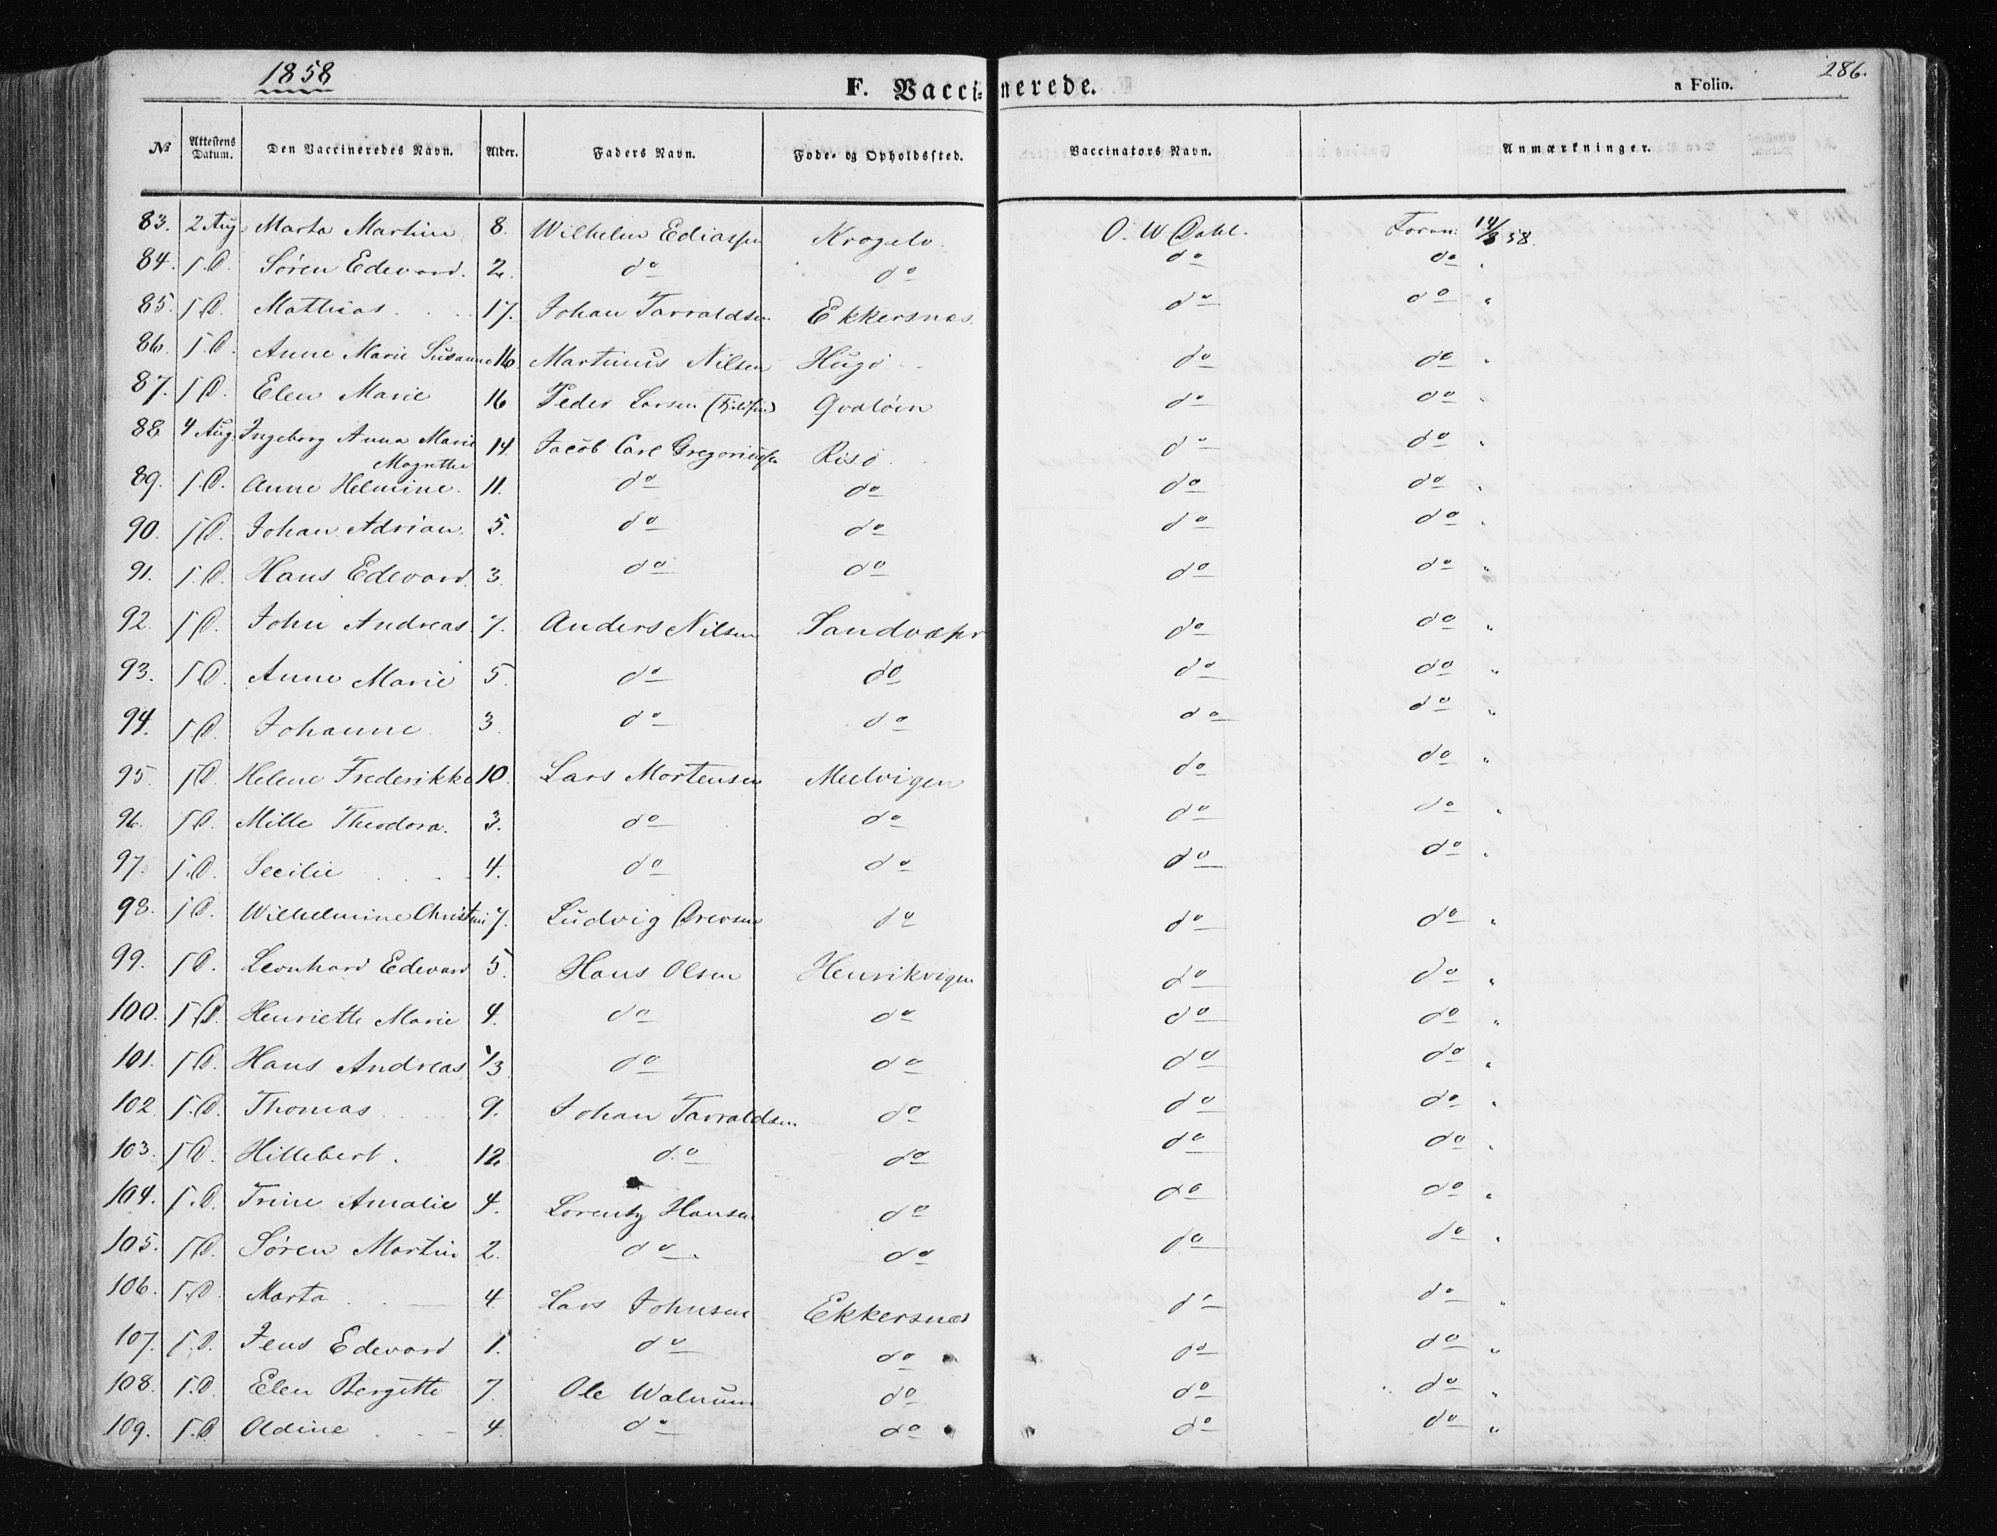 1858 F. Vaccinerede. a Folio. 286.
No Attestens Datum. Den Vaccineredes Navn. Alder. Faders Navn. Føde- og Opholdssted. Vaccinators Navn. Anmærkninger.
83. 2 Aug. Marta Martine 8. Wilhelm Ediassen Krogelv. O. W Dahl. Foran 14/8 58.
84. S.D. Søren Edevard. 2. do do do do "
85. S.D. Mathias 17. Johan Tarraldsen Ekkersnæs. do do "
86. S.D. Anne Marie Susanne 16. Martinus Nilsen Hugø do do "
87. S.D. Elen Marie 16 Peder Larsen Qvaløen do do "
88 4 Aug. Ingeborg Anna Marie 14. Jacob Carl Gregoriussen Risø do do "
Magrethe
89. S.D. Anne Helmine. 11. do do do do "
90. S.D. Johan Adrian. 5. do do do do "
91. S.D. Hans Edevard. 3. do do do do "
92. S.D. John Andreas. 7. Anders Nilsen Sandvær do do "
93. S.D. Anne Marie 5. do do do do "
94. S.D. Johanne 3 do do do do "
95 S.D. Helene Frederikke 10. Lars Mortensen Melvigen do do "
96. S.D. Mille Theodora. 3. do do do do "
97. S.D. Secilie 4. do do do do "
98. S.D. Wilhelmine Christine 7. Ludvig do do do "
99. S.D. Leonhard Edevard 5. Hans Olsen Henrikvigen do do "
100. S.D. Henriette Marie 4. do do do do "
101. S.D. Hans Andreas 1/3 do do do do "
102. S.D. Thomas 9. Johan Tarraldsen do do do "
103. S.D. Hillebert. 12. do do do do "
104. S.D. Trine Amalie 4. Lorentz Hansen do do do "
105. S.D. Søren Martin 2. do do do do "
106. S.D. Marta 4 Lars Johnsen Ekkersnæs do do "
107. S.D. Jens Edevard 1. do do do do "
108. S.D. Elen Bergitte 7. Ole Walnum do do do "
109. S.D. Oldine 4. do do do do "